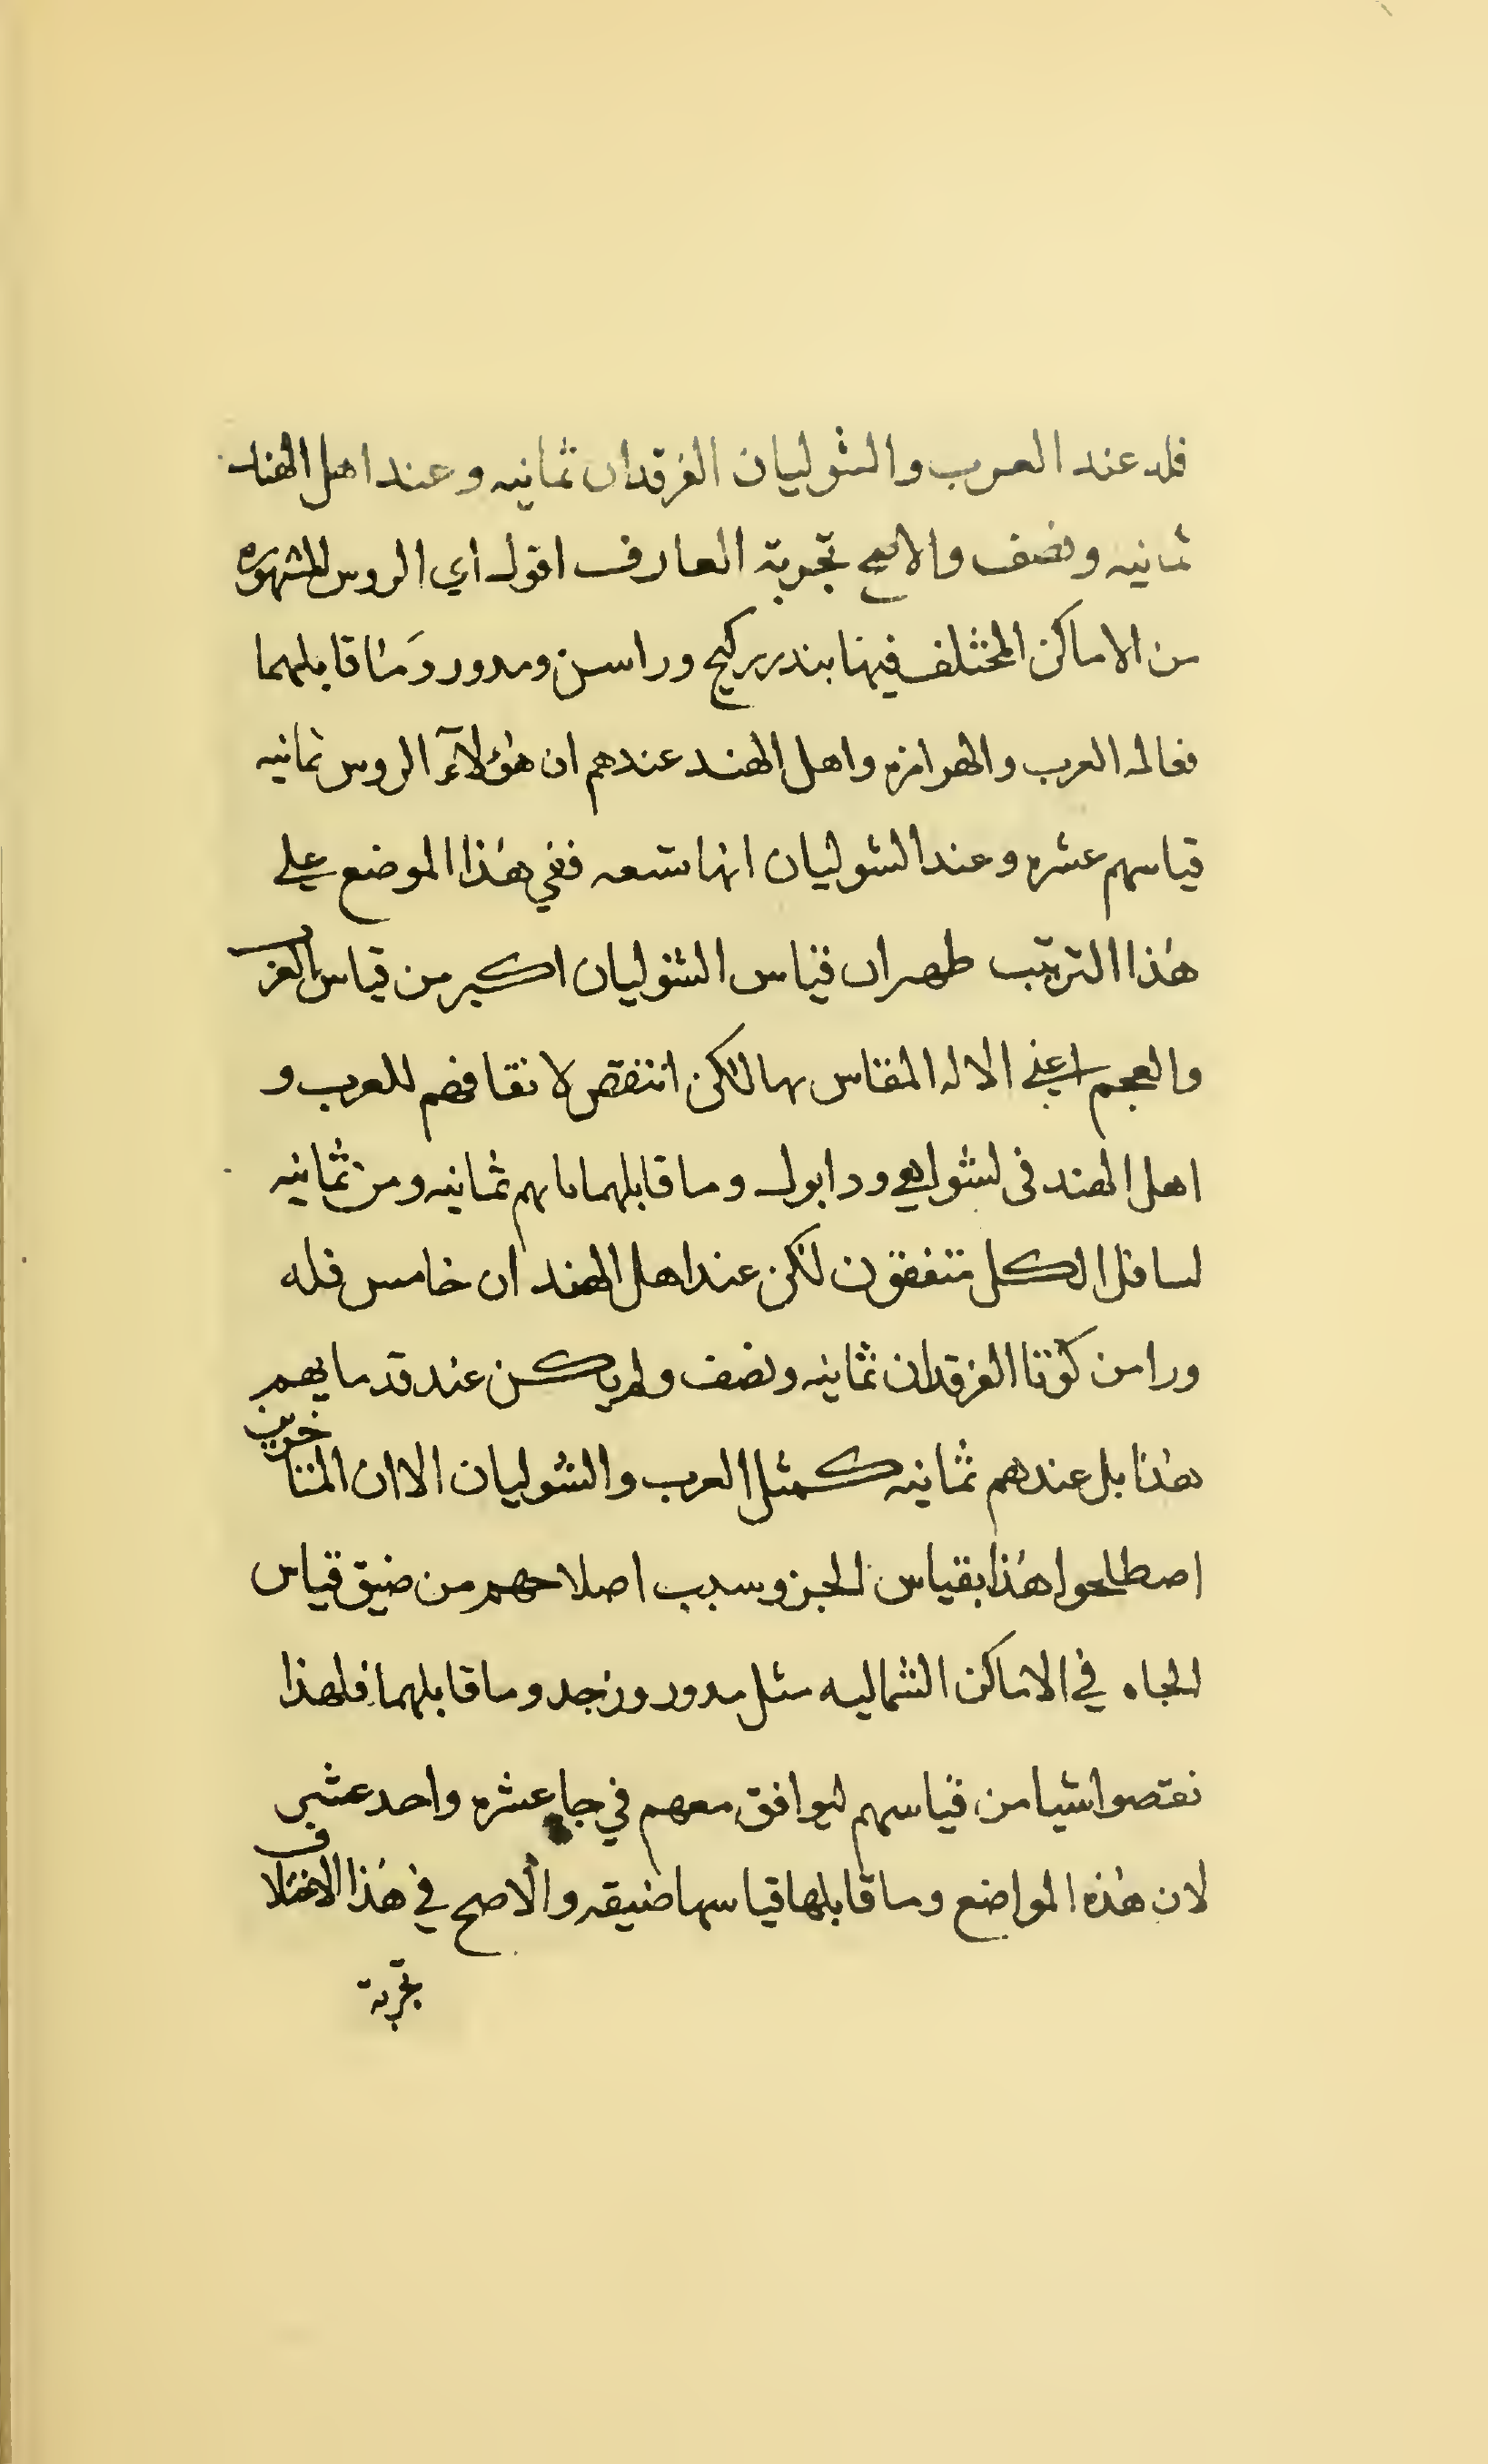 فله عند العرب والشوليان الفرقدان ثمانيه وعند اهل الهند
ثمانيه ونصف والاصح تجربة العارف اقول اي الروس المشهوره
من الاماكن المختلف فيها بندر كيج وراسن ومدور وما قابلهما
فعالمه العرب والهرامزه واهل الهند عندهم ان هؤلآء الروس ثمانيه
قياسهم عشره وعند الشوليان انها تسعه ففي هذا الموضع علي
هذا الترتيب ظهر ان قياس الشوليان اكبر من قياس العرب
والعجم اعني الاله المقاس بها لكن انتقص لاتفاقهم للعرب و
اهل الهند في ودابول وما قابلهما ثمانيه ومن ثمانيه
لسافل الكل متفقون لكن عند اهل الهند ان خامس فله
وراس كوننا الفرقدان ثمانيه ونصف ولم يكن عند قدمايهم
هذا بل عندهم ثمانيه كمثل العرب والشوليان الا ان المتاخرين
اصطلحوا هذا بقياس الجزو سبب اصلاحهم من ضيق قياس
الجاه في الاماكن الشماليه مثل مدور وزجد وما قابلهما فلهذا
نقصوا شيا من قياسهم ليوافق معهم في جاه عشره واحد عشر
لان هذه المواضع وما قابلها قياسها ضيقه والاصح في هذا الاختلاف
تجربة